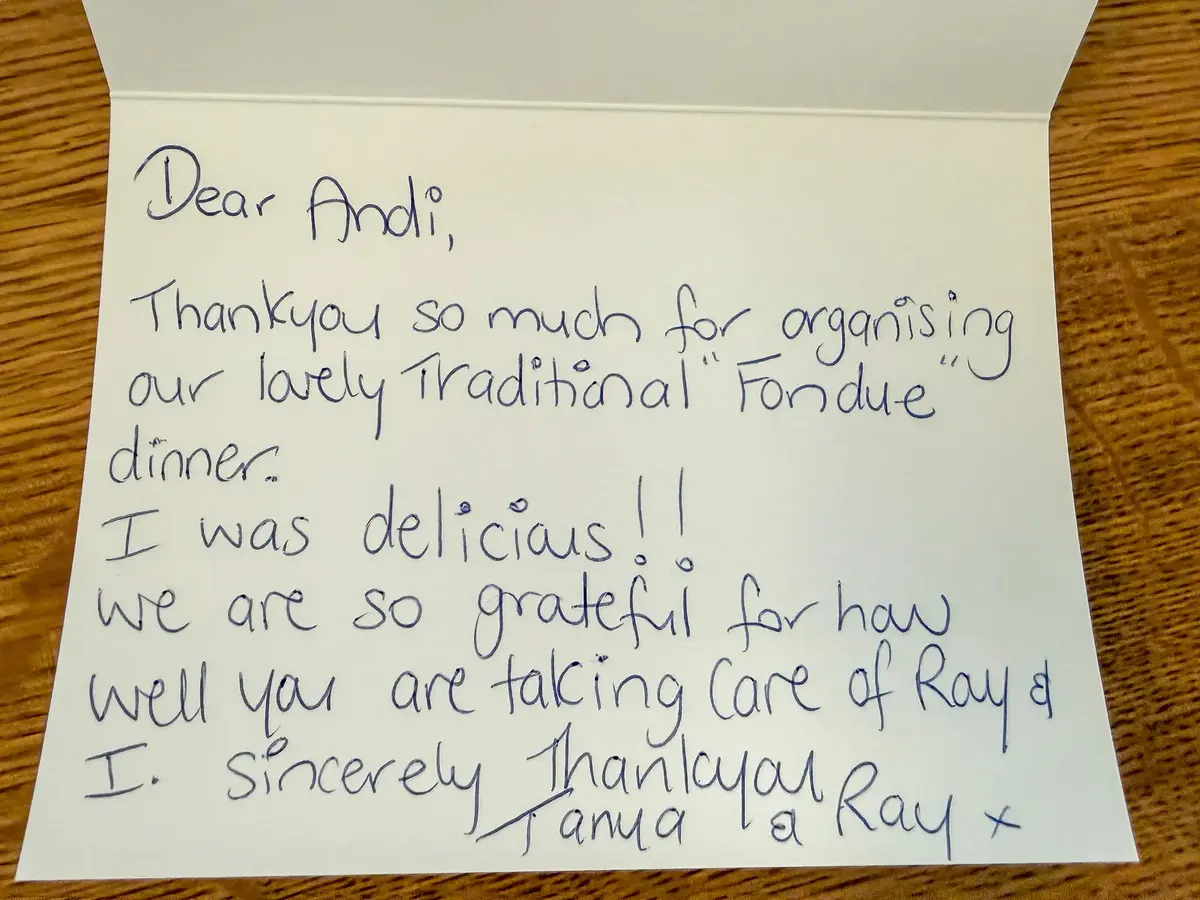 Dear Andi,
Thankyou so much for organising
our lovely Traditional "Fondue"
dinner.
I was delicious!!
we are so grateful for how
well you are taking Care of Ray &
I. sincerely Thankyou
Tanya & Ray x